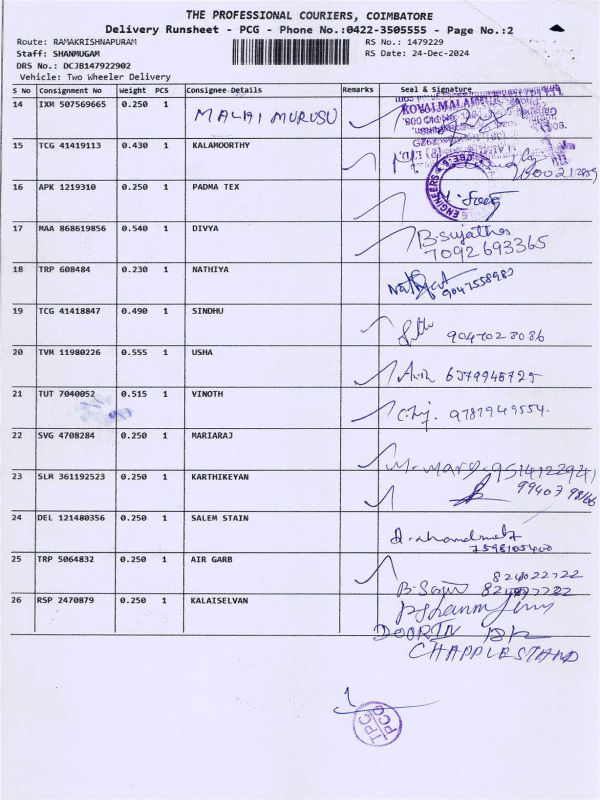 THE PROFESSIONAL COURIERS, COIMBATORE
Delivery Runsheet - PCG - Phone No.:0422-3505555 - Page No.:2
Route: RAMAKRISHNAPURAM RS No.: 1479229
Staff: SHANMUGAM RS Date: 24-Dec-2024
DRS No.: DCJB147922902
Vehicle: Two Wheeler Delivery
S No Consignment No Weight PCS Consignee Details Remarks Seal & Signature
14 IXM 507569665 0.250 1 MALAI MURUSU
15 TCG 41419113 0.430 1 KALAMOORTHY
16 APK 1219310 0.250 1 PADMA TEX
17 MAA 868619856 0.540 1 DIVYA B. Sujatha
7092693365
18 TRP 608484 0.230 1 NATHIYA
19 TCG 41418847 0.490 1 SINDHU
20 TVM 11980226 0.555 1 USHA
21 TUT 7040052 0.515 1 VINOTH 9787949554.
22 SVG 4708284 0.250 1 MARIARAJ
23 SLM 361192523 0.250 1 KARTHIKEYAN
24 DEL 121480356 0.250 1 SALEM STAIN
25 TRP 5064832 0.250 1 AIR GARB
26 RSP 2470879 0.250 1 KALAISELVAN
CHAPPLESTAND
TPC
PCG